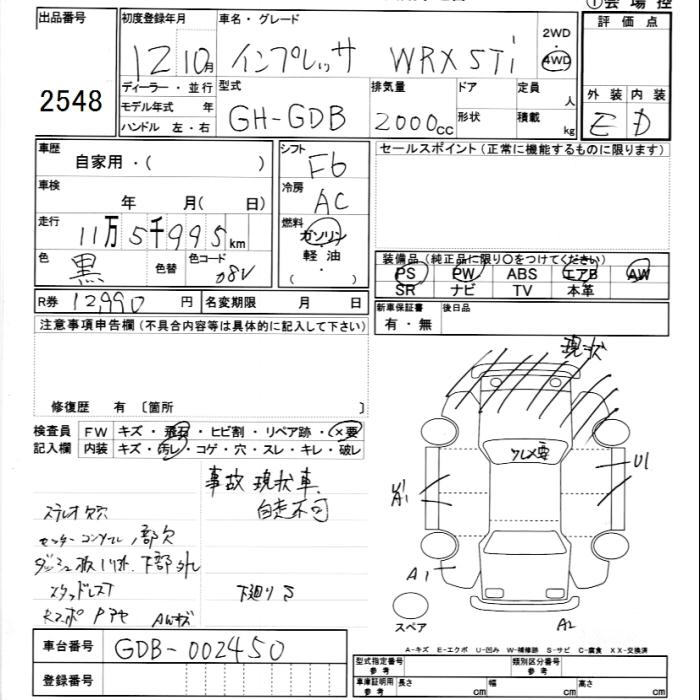 ①会場控
出品番号
2548
初度登録年月
12 10月
車名・グレード
インプレッサ WRX STi
2WD
4WD
評価点
外装 内装
E D
ディーラー・並行
モデル年式 年
ハンドル 左・右
型式
GH-GDB
排気量
2000cc
ドア
形状
定員 人
積載 kg
車歴
自家用・( )
車検
年 月( 日)
走行
11万5千995km
色
黒
色替
色コード
08V
シフト
F6
冷房
AC
燃料
ガソリン
軽油
( )
セールスポイント(正常に機能するものに限ります)
装備品(純正品に限り○をつけてください)
PS PW ABS エアB AW
SR ナビ TV 本革
R券 12,990 円 名変期限 月 日
新車保証書
有・無
後日品
注意事項申告欄(不具合内容等は具体的に記入して下さい)
修復歴 有 〔箇所 〕
検査員
記入欄
FW キズ・飛石・ヒビ割・リペア跡・×要
内装 キズ・汚レ・コゲ・穴・スレ・キレ・破レ
事故 現状車
自走不可
ステレオ欠
センターコンソール 1部欠
下部外レ
スタッドレス
AWキズ
下廻りS
現状
ガレ×要
U1
A1
U1
A1
A2
スペア
A-キズ E-エクボ U-凹み W-補修跡 S-サビ C-腐食 XX-交換済
車台番号
GDB-002450
登録番号
型式指定番号
参考
類別区分番号
参考
車庫証明用
参考
長さ cm 幅 cm 高さ cm